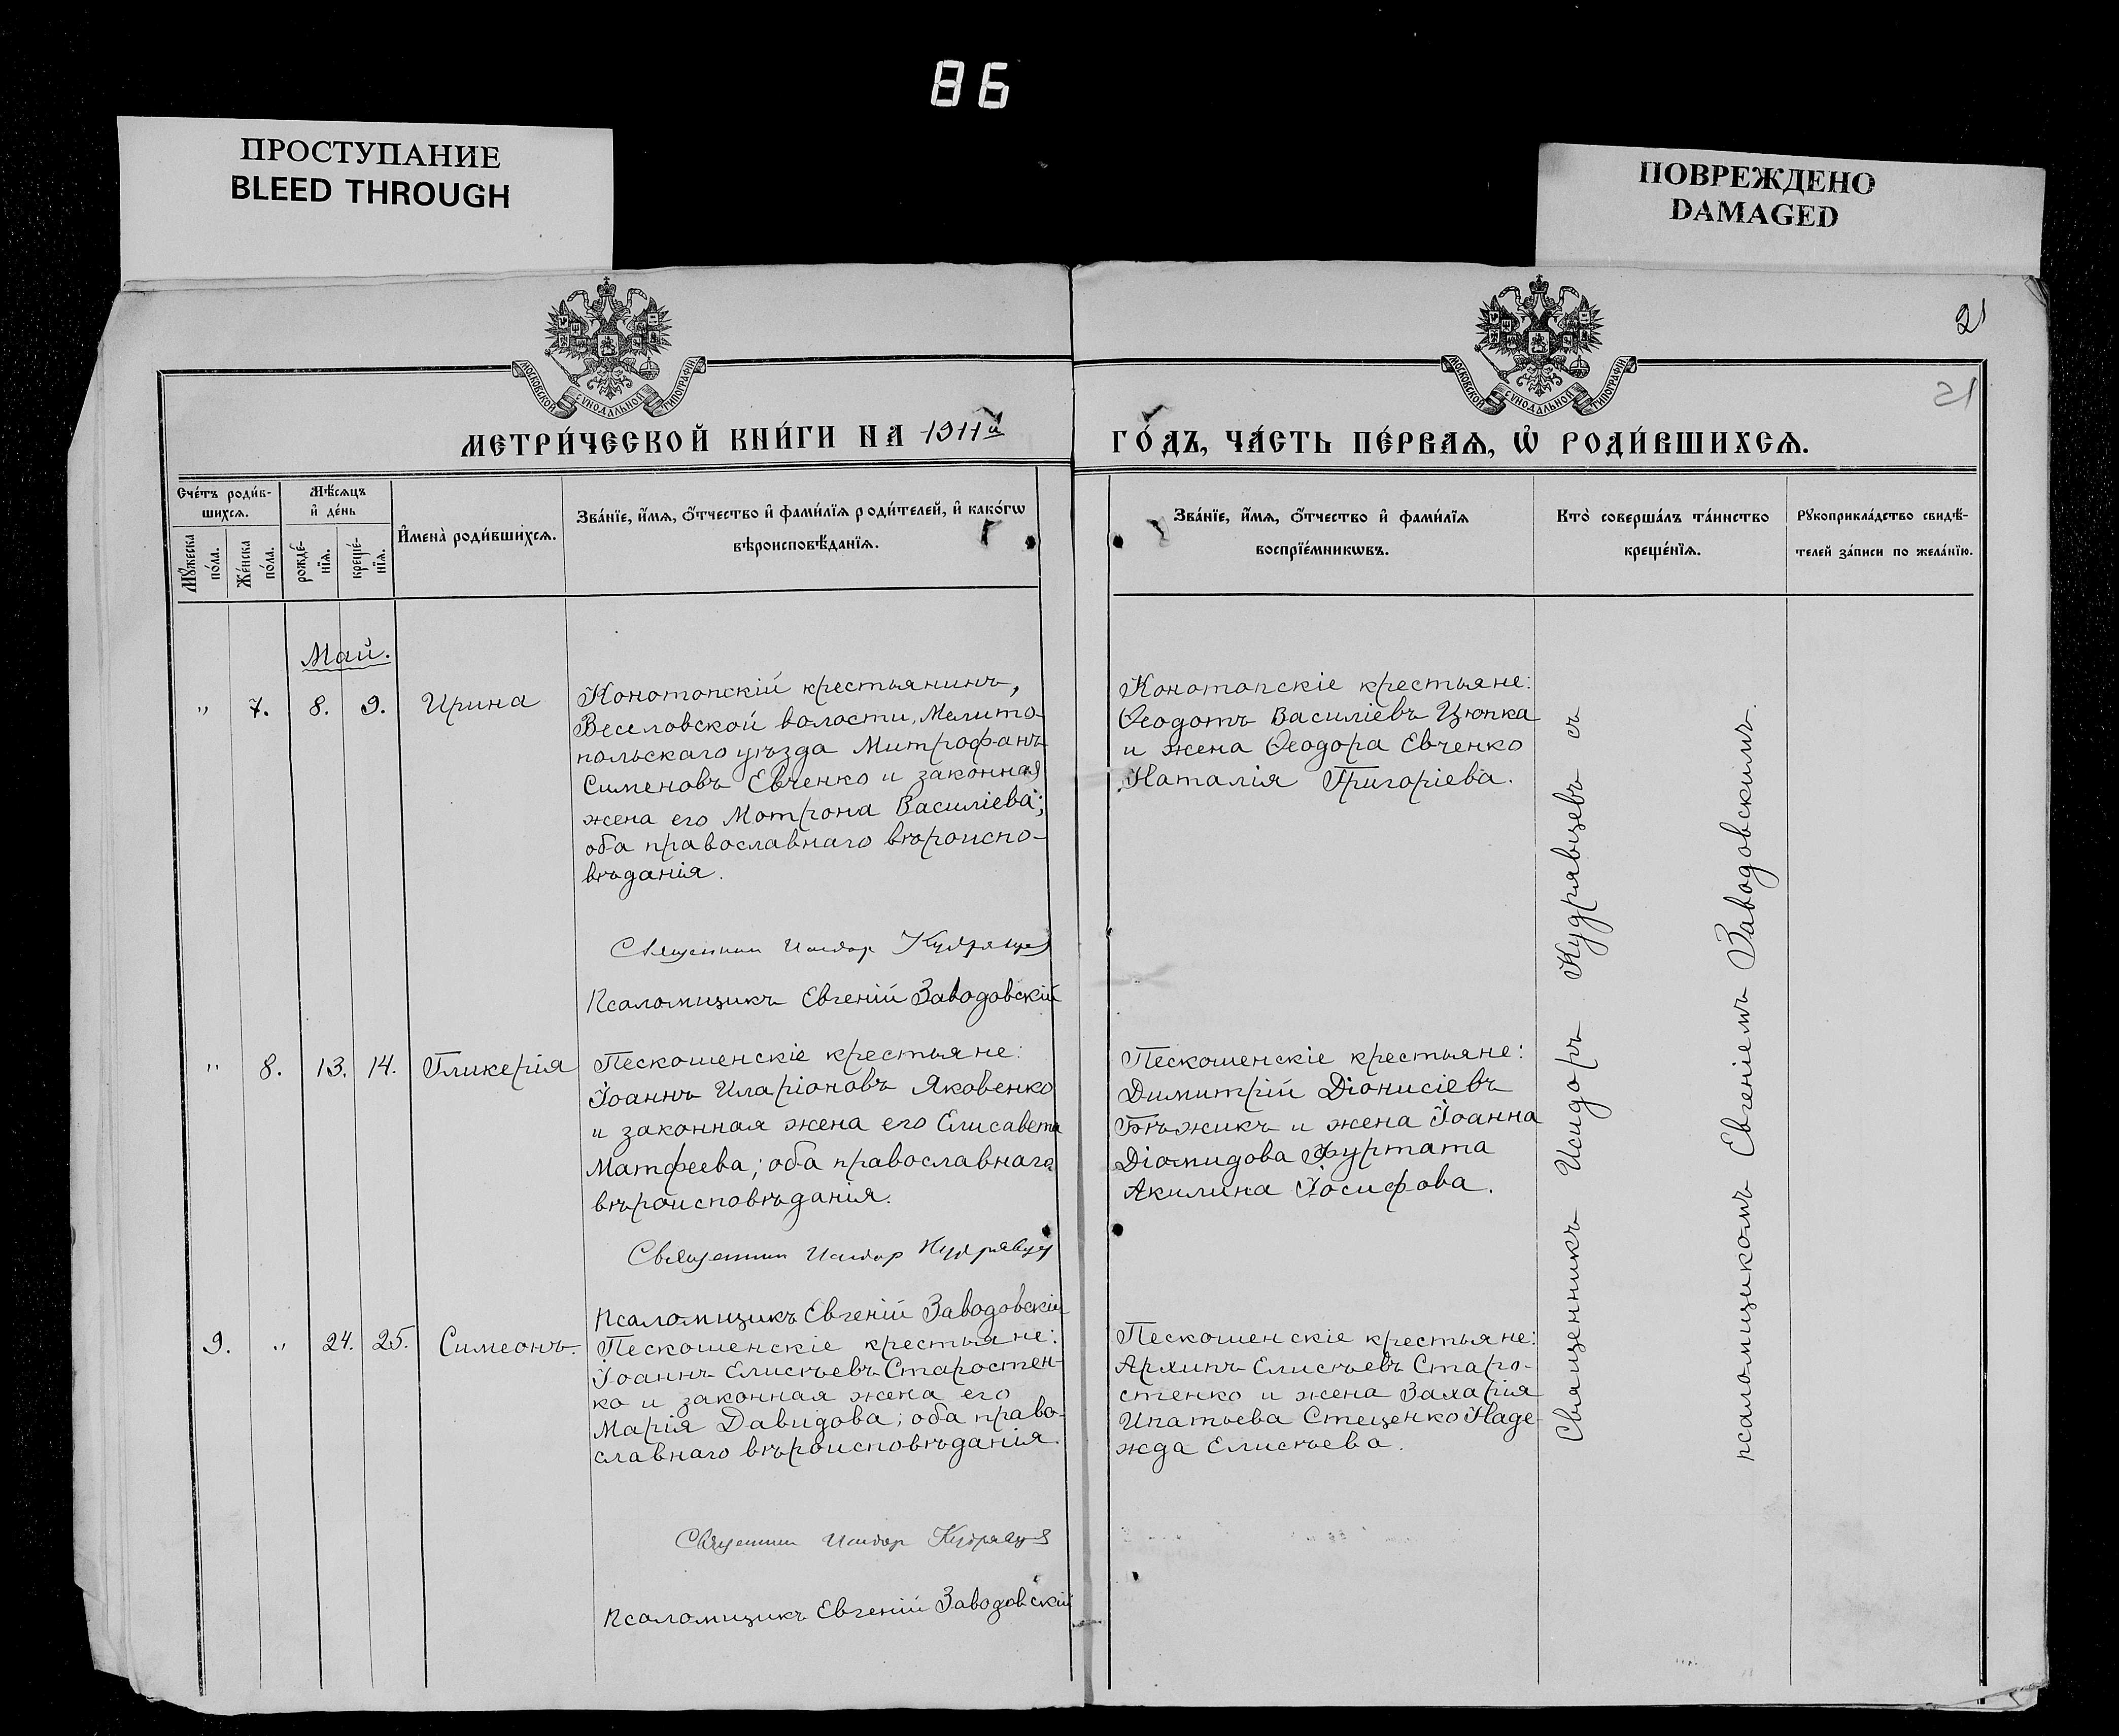 86
ПРОСТУПАНИЕ
BLEED THROUGH
ПОВРЕЖДЕНО
DAMAGED
МОСКОВСКОЙ СѴНОДАЛЬНОЙ ТИПОГРАФІИ
МОСКОВСКОЙ СѴНОДАЛЬНОЙ ТИПОГРАФІИ
21
21
МЕТРИ́ЧЕСКОЙ КНИ́ГИ НА 1911й
ГО́ДЪ, ЧА́СТЬ ПЕ́РВАѦ, Ѡ҆ РОДИ́ВШИХСѦ.
Сче́тъ роди́в-
шихсѧ.
Мꙋ́жеска
по́ла.
Же́нска
по́ла.
Мѣ́сѧцъ
и҆ де́нь
рожде́-
нїѧ.
креще́-
нїѧ.
И҆мена̀ роди́вшихсѧ.
Зва́нїе, и҆́мѧ, ѻ҆́тчество и҆ фами́лїѧ роди́телей, и҆ како́гѡ
вѣроисповѣ́данїѧ.
Зва́нїе, и҆́мѧ, ѻ҆́тчество и҆ фами́лїѧ
воспрїе́мникѡвъ.
Кто̀ соверша́лъ та́инство
креще́нїѧ.
Рꙋкоприкла́дство свидѣ́-
телей за́писи по жела́нїю.
Май.
" 7. 8. 9. Ирина
Конотопскій крестьянинъ,
Веселовской волости, Мелито-
польскаго уѣзда Митрофанъ
Сименовъ Евченко и законная
жена его Мотрона Василіева;
оба православнаго вѣроиспо-
вѣданія.
Священник Исидор Кудрявцев
Псаломщикъ Евгеній Заводовскій
Конотопскіе крестьяне:
Ѳеодотъ Василіевъ Цюпка
и жена Ѳеодора Евченко
Наталія Григоріева.
" 8. 13. 14. Гликерія
Пескошенскіе крестьяне:
Іоаннъ Иларіоновъ Яковенко
и законная жена его Елисавета
Матфеева; оба православнаго
вѣроисповѣданія.
Священник Исидор Кудрявцев
Псаломщикъ Евгеній Заводовскій
Пескошенскіе крестьяне:
Димитрій Діонисіевъ
Бѣжикъ и жена Іоанна
Діомидова Фуртата
Акилина Іосифова.
9. " 24. 25. Симеонъ.
Пескошенскіе крестьяне:
Іоаннъ Елисѣевъ Старостен-
ко и законная жена его
Марія Давидова; оба право-
славнаго вѣроисповѣданія.
Священник Исидор Кудрявцев
Псаломщикъ Евгеній Заводовскій
Пескошенскіе крестьяне:
Архипъ Елисѣевъ Старо-
стенко и жена Захарія
Ипатьева Стеценко Наде-
жда Елисѣева.
Священникъ Исидоръ Кудрявцевъ съ
псаломщикомъ Евгеніемъ Заводовскимъ.